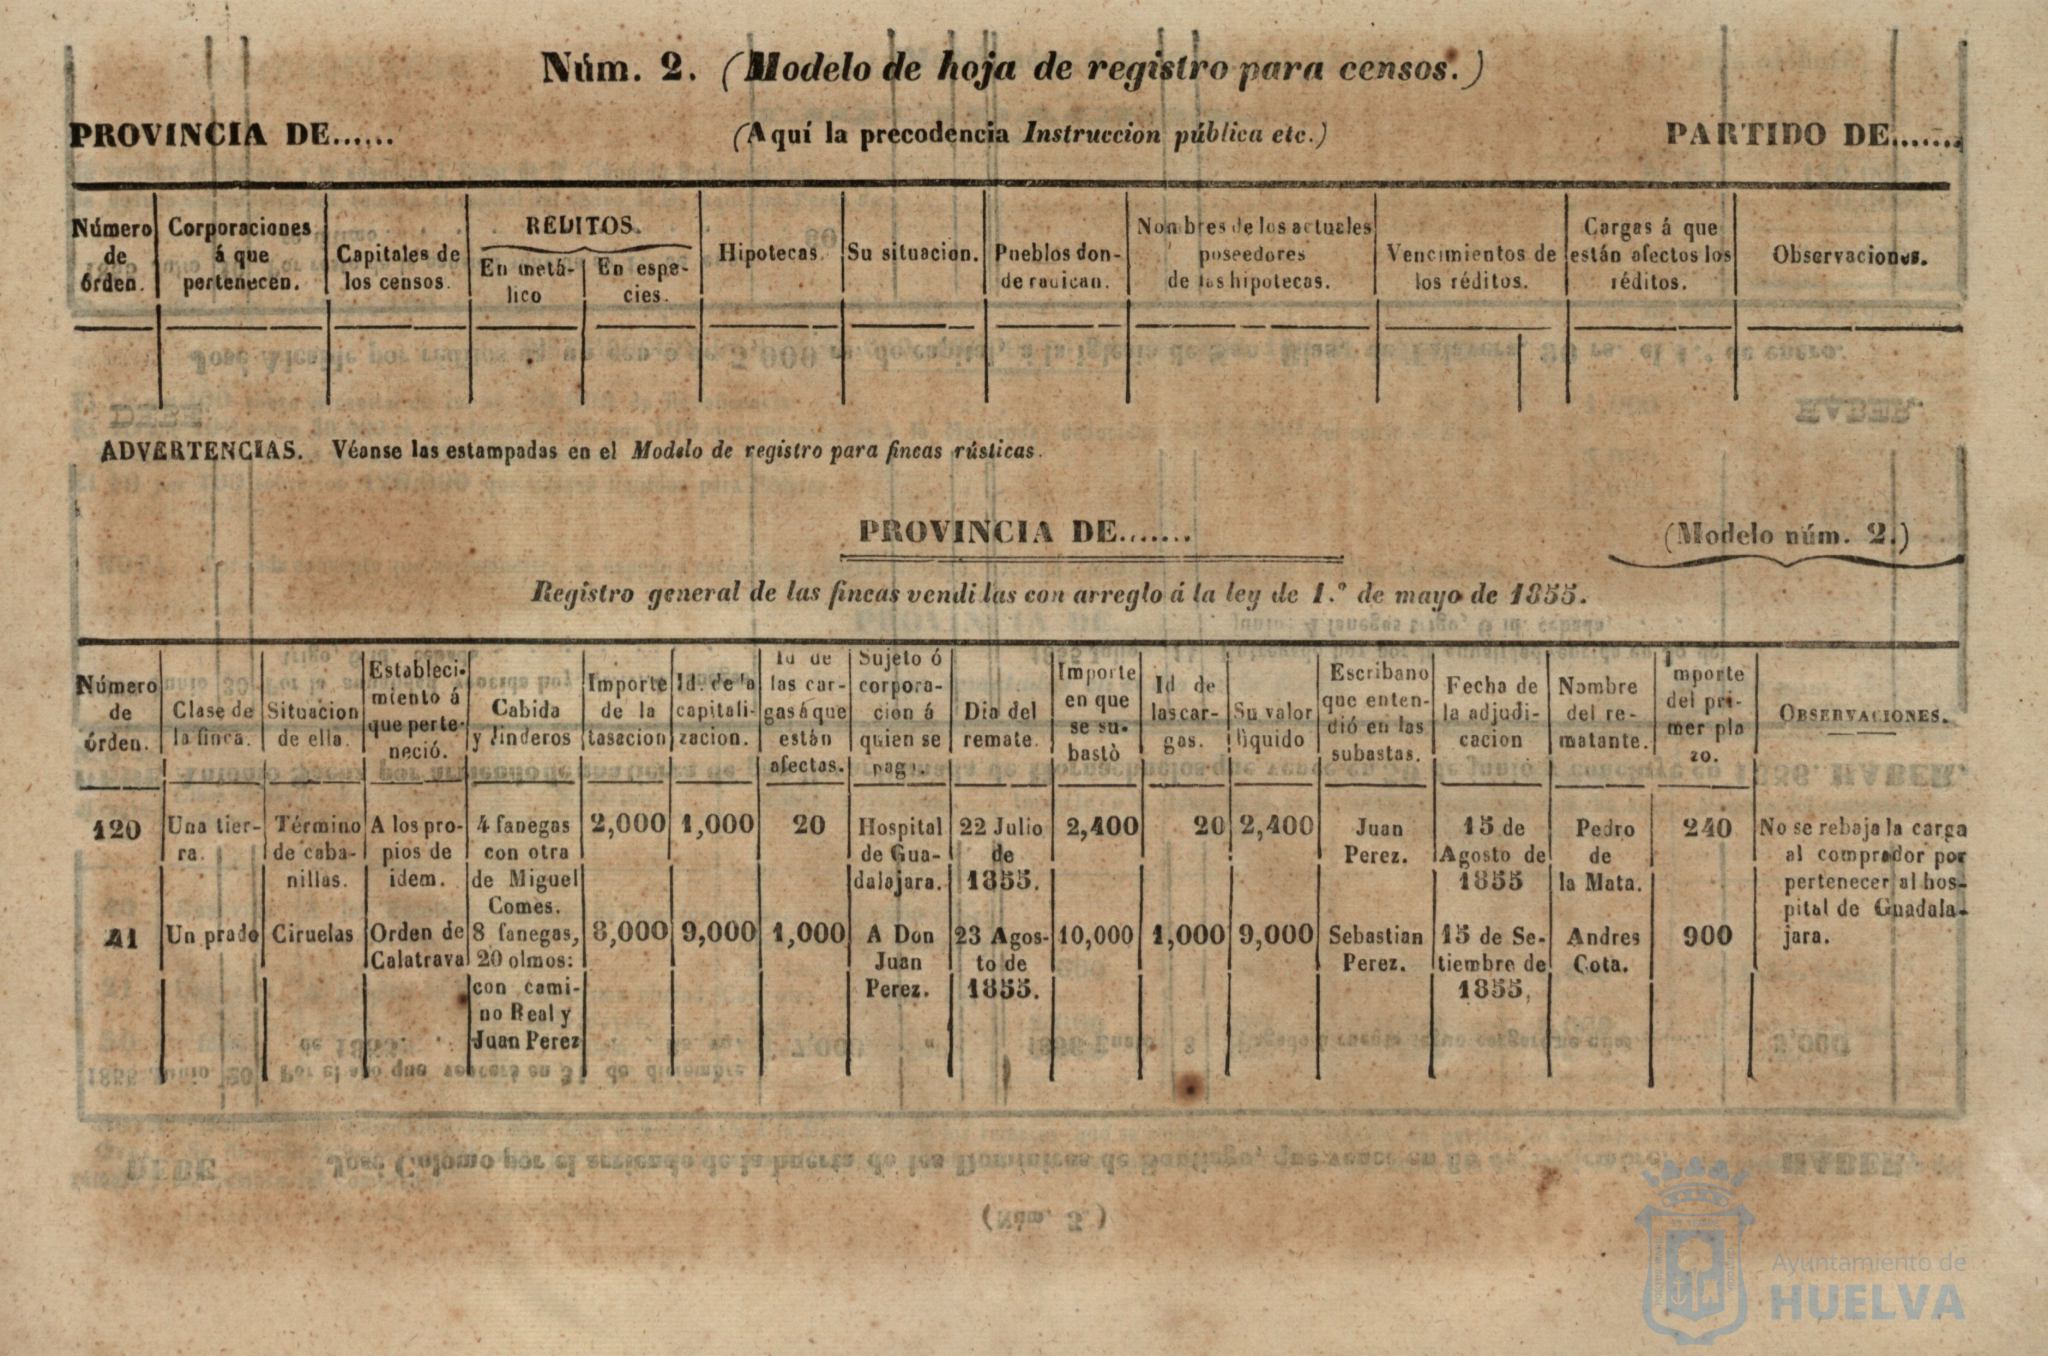 Núm. 2. (Modelo de hoja de registro para censos.)
PROVINCIA DE...... (Aquí la precodencia Instruccion pública etc.) PARTIDO DE.......
Número de órden. Corporaciones á que pertenecen. Capitales de los censos. RÉDITOS. En metálico En especies. Hipotecas. Su situacion. Pueblos donde radican. Nombres de los actuales poseedores de las hipotecas. Vencimientos de los réditos. Cargas á que están afectos los réditos. Observaciones.
ADVERTENCIAS. Véanse las estampadas en el Modelo de registro para fincas rústicas.
PROVINCIA DE....... (Modelo núm. 2.)
Registro general de las fincas vendidas con arreglo á la ley de 1.º de mayo de 1855.
Número de órden. Clase de la finca. Situacion de ella. Establecimiento á que perteneció. Cabida y linderos Importe de la tasacion Id. de la capitalizacion. Id de las cargas á que están afectas. Sujeto ó corporacion á quien se paga. Dia del remate. Importe en que se subastò Id de las cargas. Su valor lìquido Escribano que entendió en las subastas. Fecha de la adjudicacion Nombre del rematante. Importe del primer plazo. OBSERVACIONES.
120 Una tierra. Término de cabanillas. A los propios de idem. 4 fanegas con otra de Miguel Comes. 2,000 1,000 20 Hospital de Guadalajara. 22 Julio de 1855. 2,400 20 2,400 Juan Perez. 15 de Agosto de 1855 Pedro de la Mata. 240 No se rebaja la carga al comprador por pertenecer al hospital de Guadalajara.
41 Un prado Ciruelas Orden de Calatrava 8 fanegas, 20 olmos: con camino Real y Juan Perez 8,000 9,000 1,000 A Don Juan Perez. 23 Agosto de 1855. 10,000 1,000 9,000 Sebastian Perez. 15 de Setiembre de 1855, Andres Cota. 900
Ayuntamiento de
HUELVA